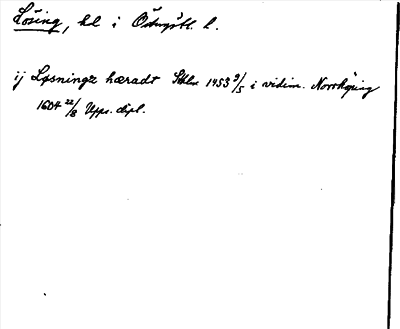 Lösing, hd i Östergötl. l.
ij Løsninge hæradt Sthlm 1453 9/5 i vidim. Norrköping
1604 22/8 Upps. dipl.